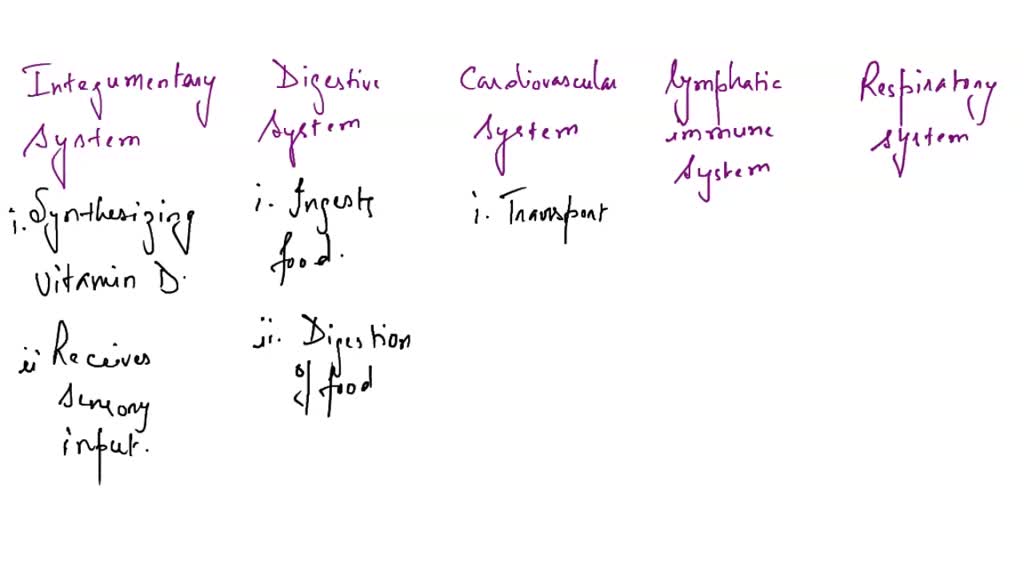 Integumentary
System
i. Synthesizing
Vitamin D.
ii Receives
Sensory
input.
Digestive
System
i. Ingests
food.
ii. Digestion
of food
Cardiovascular
System
i. Transport
lymphatic
immune
System
Respiratory
system